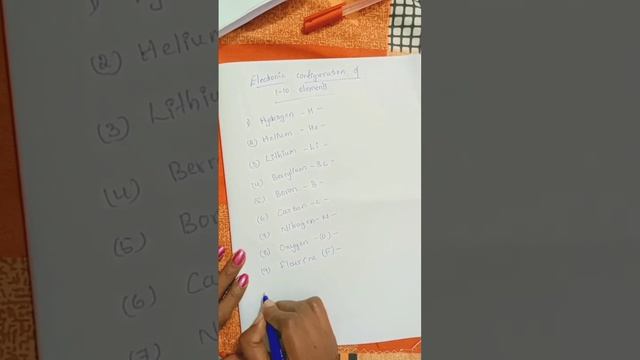 Electronic configuration of
1-10 elements
1) Hydrogen - H -
(2) Helium - He -
(3) Lithium - Li -
(4) Beryllium - Be -
(5) Boron - B -
(6) Carbon - C -
(7) Nitrogen - N -
(8) Oxygen - (O) -
(9) Flourine (F) -